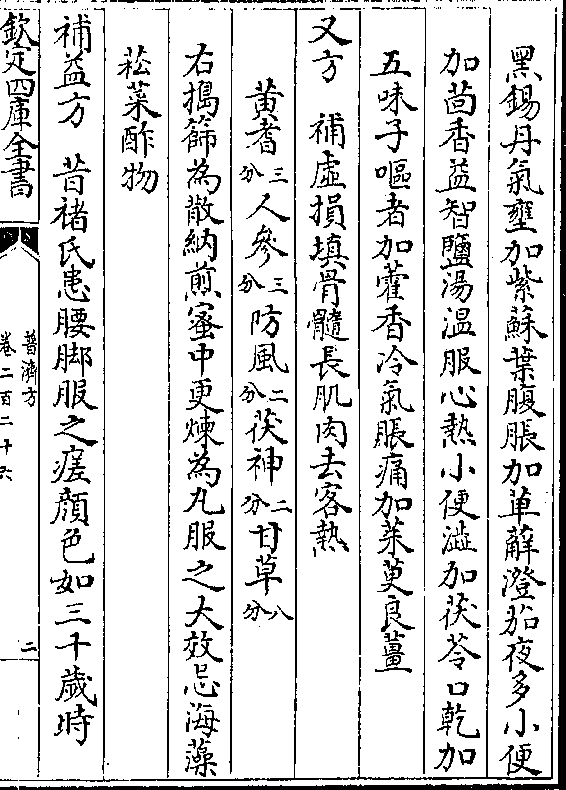 黑錫丹氣壅加紫蘇葉腹脹加蓽薢澄茄夜多小便
加茴香益智鹽湯温服心熱小便澁加茯苓口乾加
五味子嘔者加藿香冷氣脹痛加茱萸良薑
又方　補虛損填骨髓長肌肉去客熱
黄耆三分人參三分防風二分茯神二分甘草八分
右搗篩為散納煎蜜中更煉為丸服之大效忌海藻
菘菜酢物
補益方　昔褚氏患腰脚服之瘥顔色如三十歲時
欽定四庫全書
普濟方
卷二百二十六
二